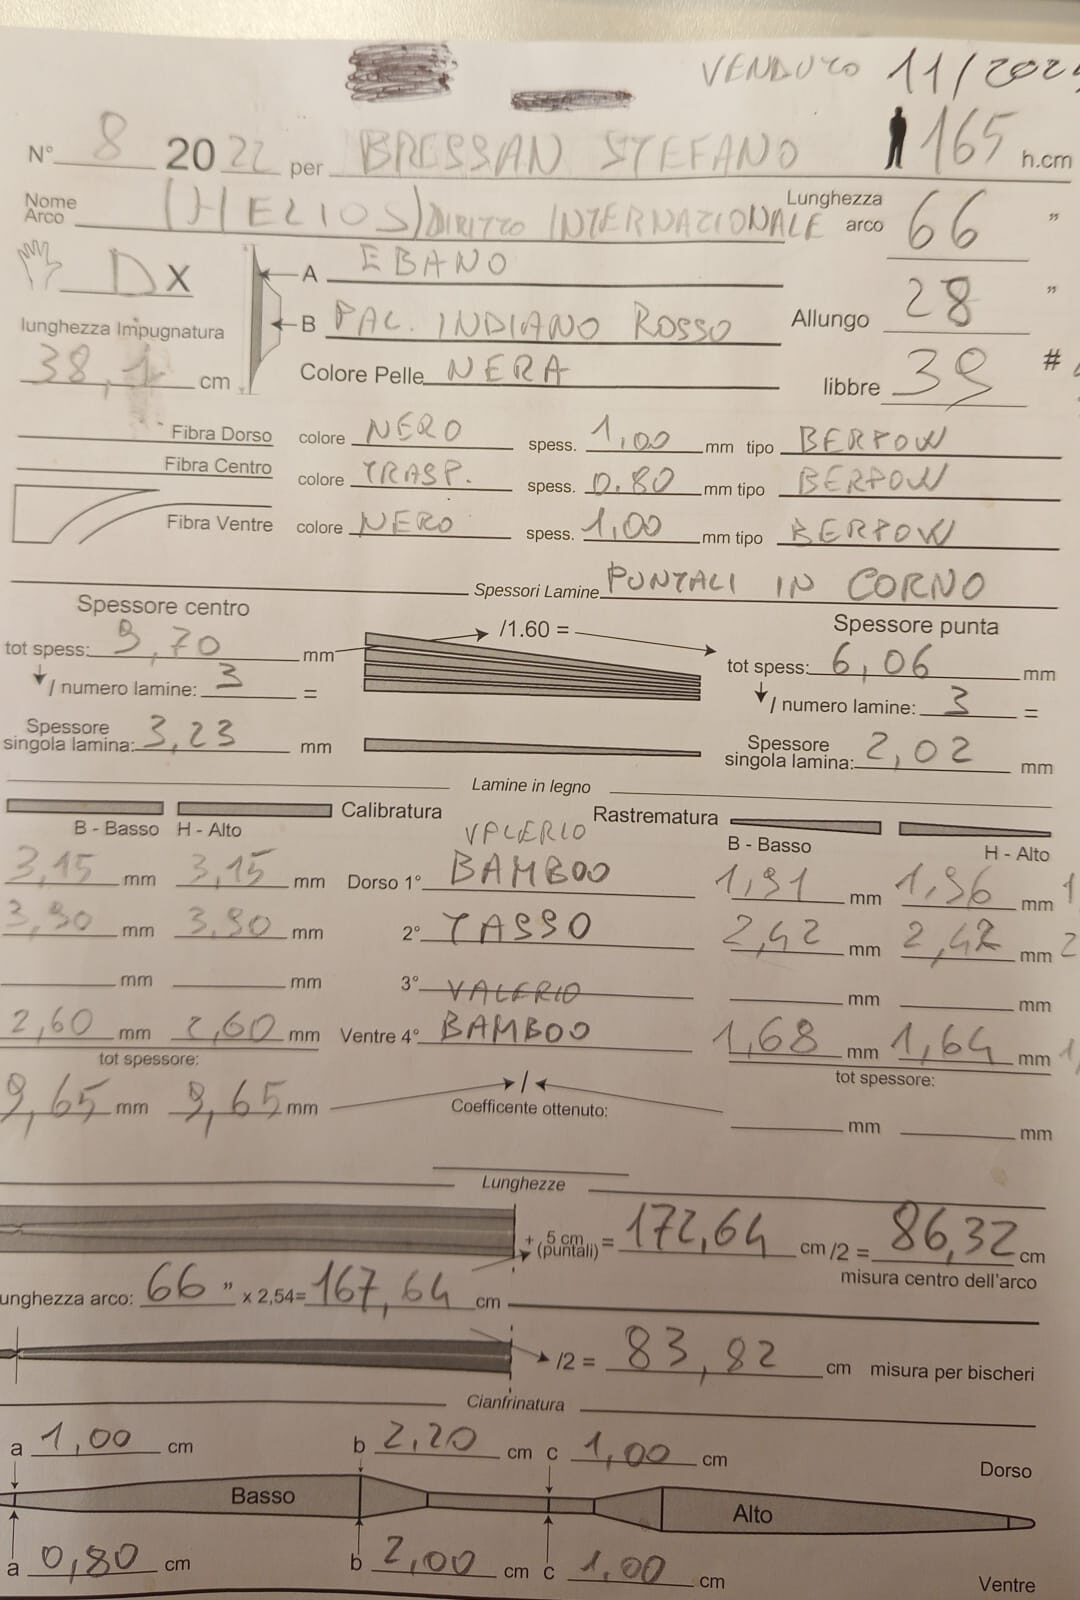 VENDUTO 11/202
N° 8 2022 per BRESSAN STEFANO 165 h.cm
Nome Arco (HELIOS) DIRITTO INTERNAZIONALE Lunghezza arco 66 "
DX A EBANO
lunghezza Impugnatura B PAL. INDIANO ROSSO Allungo 28 "
38,1 cm Colore Pelle NERA libbre 39 #
Fibra Dorso colore NERO spess. 1,00 mm tipo BERPOW
Fibra Centro colore TRASP. spess. 0.80 mm tipo BERPOW
Fibra Ventre colore NERO spess. 1,00 mm tipo BERPOW
Spessori Lamine PUNTALI IN CORNO
Spessore centro /1.60 = Spessore punta
tot spess: 9,70 mm tot spess: 6,06 mm
/ numero lamine: 3 = / numero lamine: 3 =
Spessore singola lamina: 3,23 mm Spessore singola lamina: 2,02 mm
Lamine in legno
Calibratura Rastrematura
B - Basso H - Alto VALERIO B - Basso H - Alto
3,15 mm 3,15 mm Dorso 1° BAMBOO 1,91 mm 1,96 mm 1
3,90 mm 3,90 mm 2° TASSO 2,42 mm 2,42 mm 2
mm mm 3° VALERIO mm mm
2,60 mm 2,60 mm Ventre 4° BAMBOO 1,68 mm 1,64 mm 1,
tot spessore: tot spessore:
9,65 mm 9,65 mm / Coefficente ottenuto: mm mm
Lunghezze
+ 5 cm (puntali) = 172,64 cm /2 = 86,32 cm
misura centro dell'arco
unghezza arco: 66 " x 2,54= 167,64 cm
/2 = 83,82 cm misura per bischeri
Cianfrinatura
a 1,00 cm b 2,20 cm c 1,00 cm Dorso
Basso Alto
a 0,80 cm b 2,00 cm c 1,00 cm Ventre